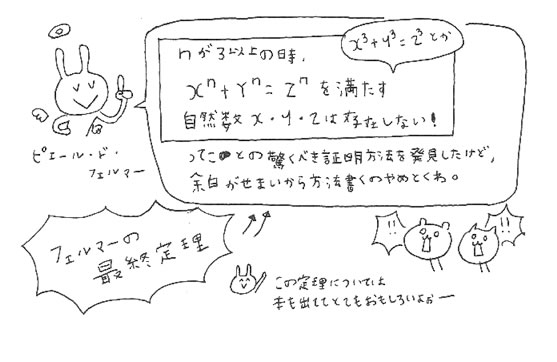 nが3以上の時、
x³+y³=z³とか
xⁿ+Yⁿ=Zⁿを満たす
自然数x・y・zは存在しない!
ってことの驚くべき証明方法を発見したけど、
余白がせまいから方法書くのやめとくわ。
ピエール・ド・
フェルマー
フェルマーの
最終定理
!!
!!
この定理については
本も出ててとてもおもしろいよぉー